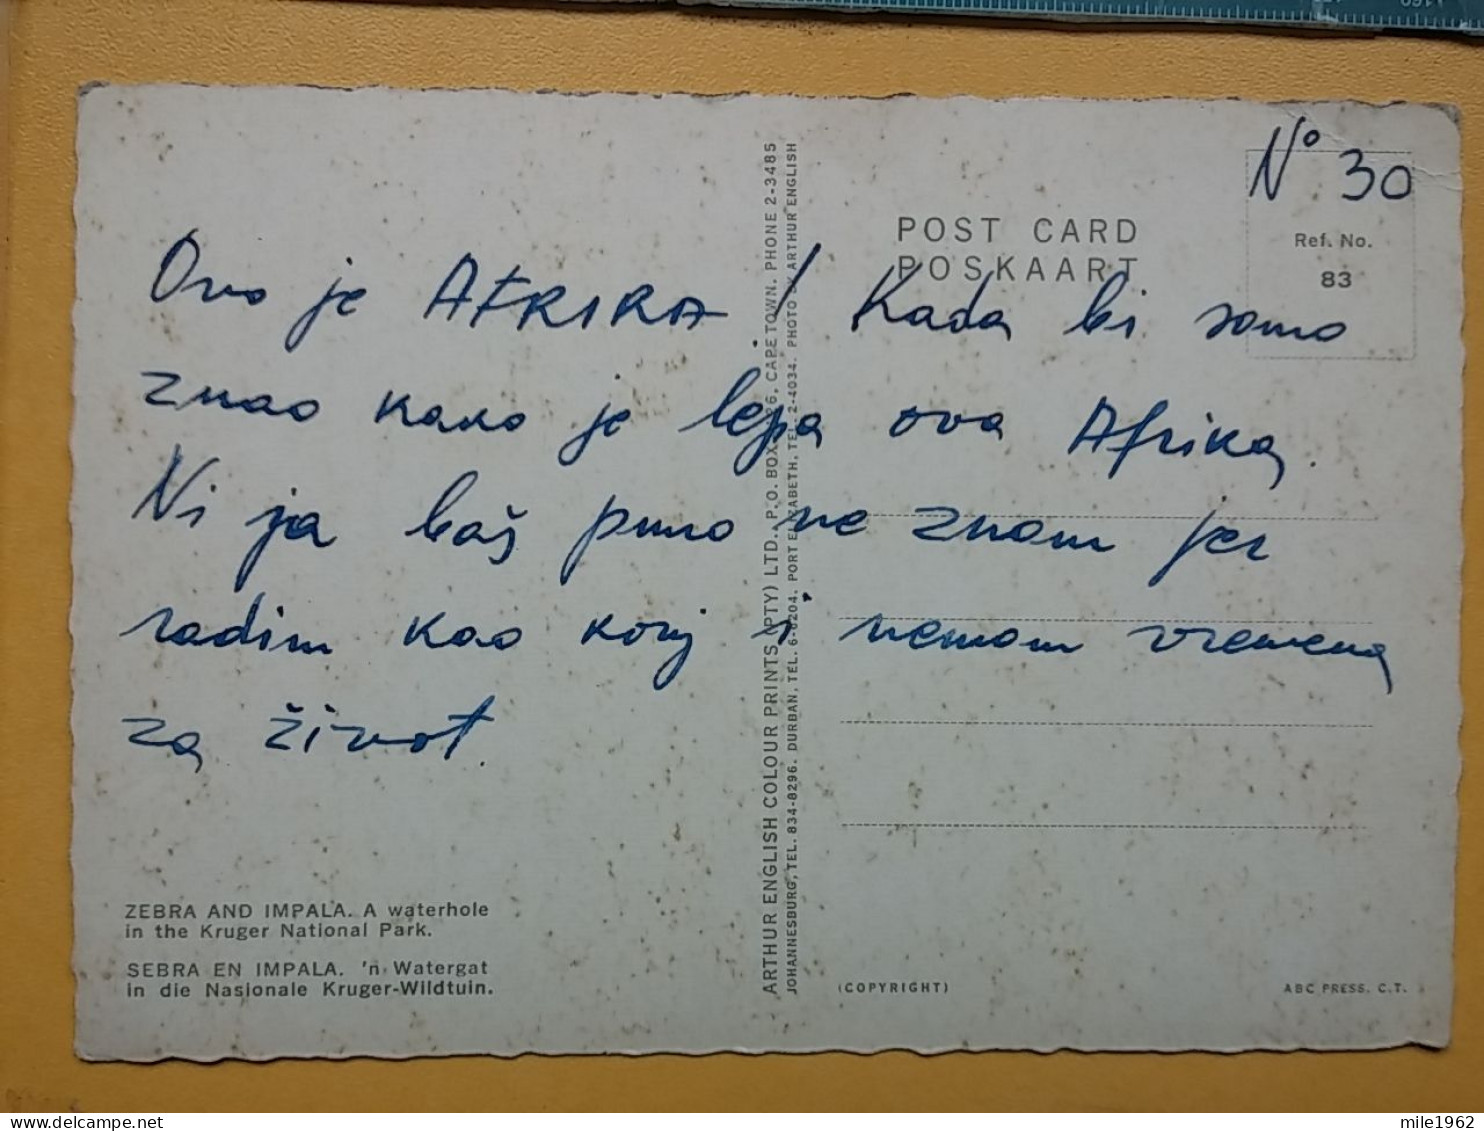 N° 30
POST CARD
POSKAART
Ref. No.
83
Ovo je AFRIKA! Kada bi samo
znao kako je lepa ova Afrika.
Ni ja baš puno ne znam jer
radim kao konj i nemam vremena
za život.
ZEBRA AND IMPALA. A waterhole
in the Kruger National Park.
SEBRA EN IMPALA. 'n Watergat
in die Nasionale Kruger-Wildtuin.
ARTHUR ENGLISH COLOUR PRINTS (PTY) LTD. P.O. BOX 26, CAPE TOWN. PHONE 2-3485
JOHANNESBURG, TEL. 834-8296. DURBAN, TEL. 6-6204. PORT ELIZABETH, TEL. 2-4034. PHOTO BY ARTHUR ENGLISH
(COPYRIGHT)
ABC PRESS. C.T.
160
mile1962